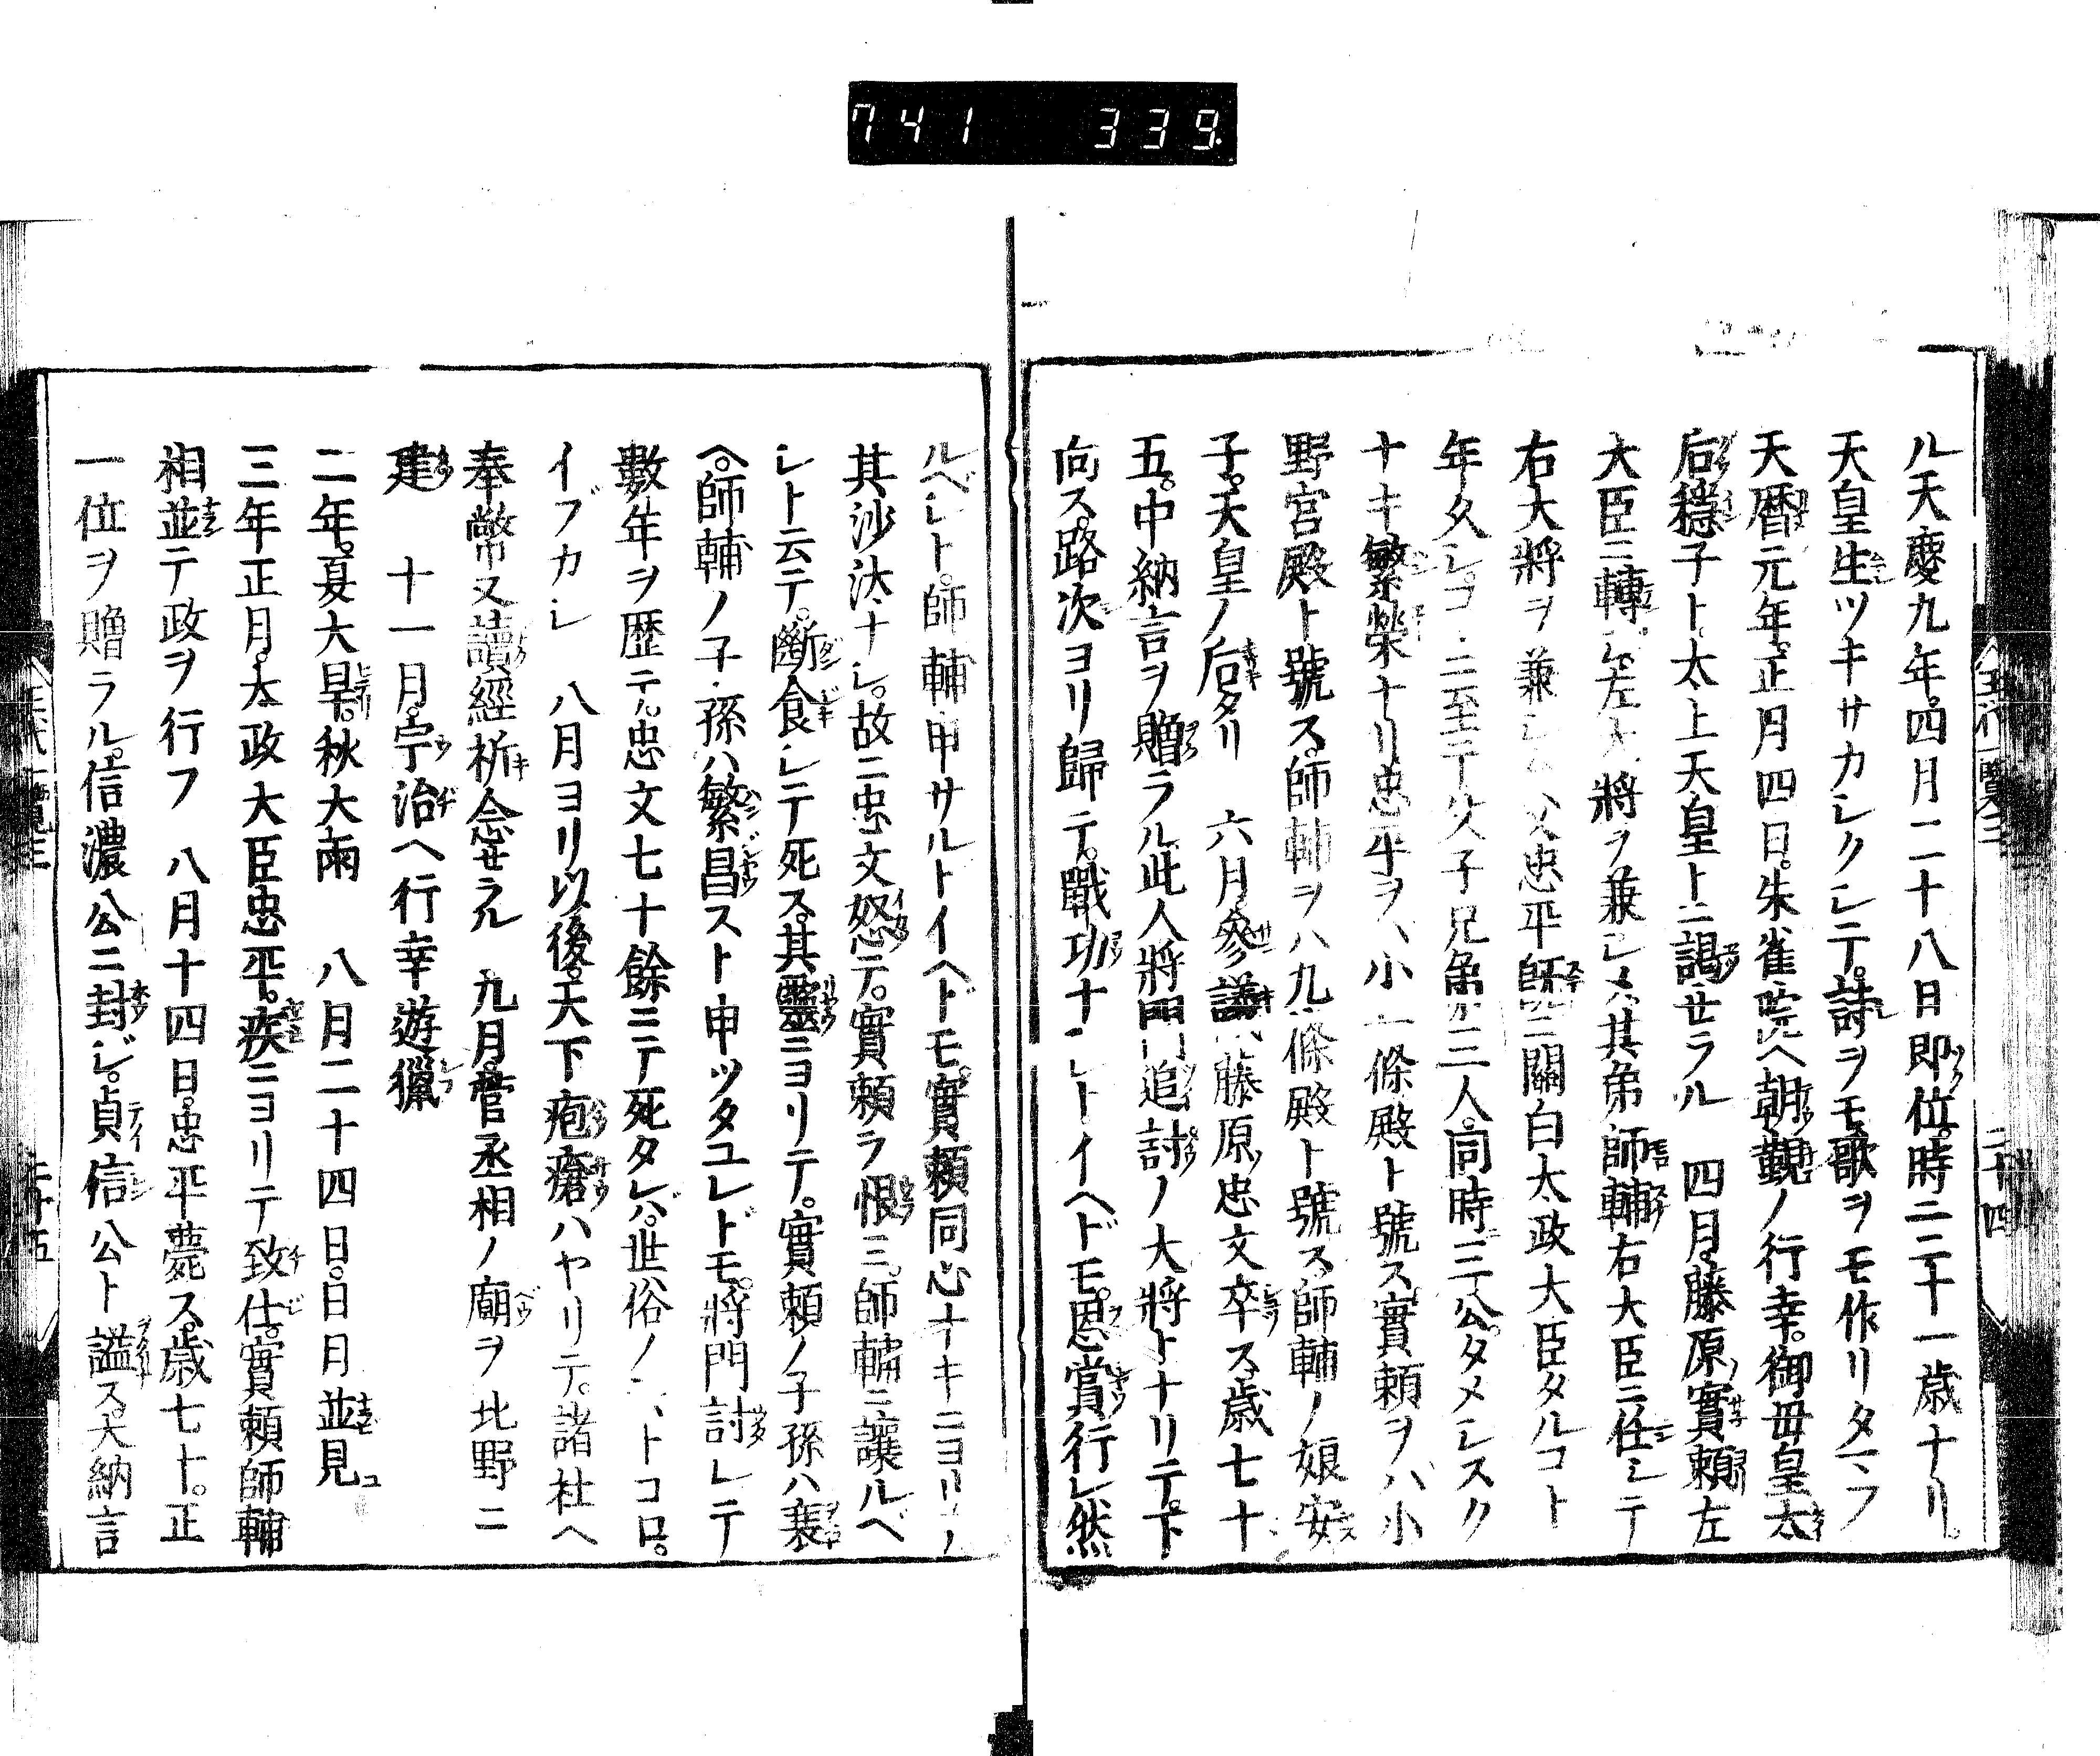 741 339.
ル天慶九年。四月二十八日即位。時ニ二十一歳ナリ。
天皇生ツキサカシクシテ。詩ヲモ歌ヲモ作リタマフ
天暦元年。正月四日。朱雀院ヘ朝覲ノ行幸。御母皇太
后穩子ト。太上天皇トニ謁セラル 四月。藤原實頼左
大臣ニ轉シ。左大將ヲ兼シメ。其弟師輔右大臣ニ任シテ
右大將ヲ兼シム。父忠平既ニ關白太政大臣タルコト
年久シ。コヽニ至テ父子兄弟三人。同時三公。タメシスク
ナキ繁榮ナリ忠平ヲハ小一條殿ト號ス。實頼ヲハ小
野宮殿ト號ス。師輔ヲハ九條殿ト號ス。師輔ノ娘安
子。天皇ノ后タリ 六月。參議藤原忠文卒ス。歳七十
五。中納言ヲ贈ラル。此人將門追討ノ大將トナリテ。下
向ス。路次ヨリ歸テ。戰功ナシトイヘドモ。恩賞行レ然
ルベシト。師輔申サルトイヘドモ。實頼同心ナキニヨリテ
其沙汰ナシ。故ニ忠文怒テ。實頼ヲ恨ミ。師輔ニ讓ルベ
シト云テ。斷食シテ死ス。其靈ニヨリテ。實頼ノ子孫ハ衰
ヘ。師輔ノ子孫ハ繁昌スト申ツタユレドモ。將門討レテ
數年ヲ歴テ。忠文七十餘ニテ死タレバ。世俗ノ トコロ。
イブカシ 八月ヨリ以後。天下疱瘡ハヤリテ。諸社ヘ
奉幣又讀經祈念セラル 九月。菅丞相ノ廟ヲ北野ニ
建 十一月。宇治ヘ行幸遊獵
二年。夏大旱。秋大雨 八月二十四日。日月並見
三年正月。太政大臣忠平。疾ニヨリテ致仕。實頼師輔
相並テ政ヲ行フ 八月十四日。忠平薨ス。歳七十。正
一位ヲ贈ラル。信濃公ニ封ジ。貞信公ト謚ス。大納言